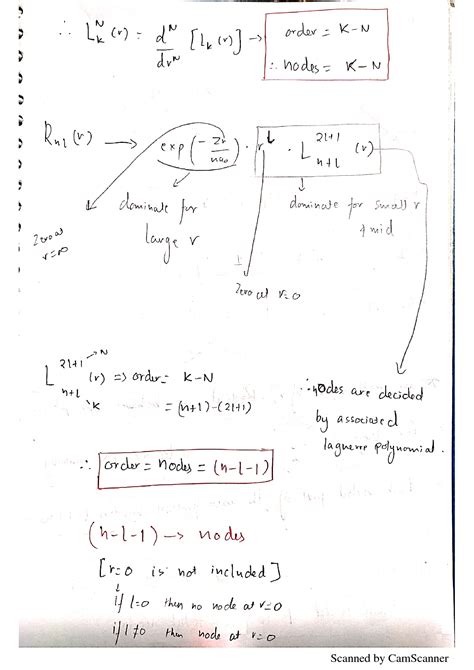 ∴ L_K^N (r) = d^N/dr^N [L_K(r)] → order = K-N
∴ nodes = K-N
R_nl(r) → exp(-Zr/na₀) · r^l · L_{n+l}^{2l+1} (r)
dominate for large r
dominate for small r & mid
Zero at r=∞
Zero at r=0
L_{n+l}^{2l+1} (r) => order = K-N
→ N
K
= (n+l)-(2l+1)
∴ order = nodes = (n-l-1)
∴ nodes are decided
by associated
laguerre polynomial.
(n-l-1) → nodes
[r=0 is not included]
↓
if l=0 then no node at r=0
if l≠0 then node at r=0
Scanned by CamScanner